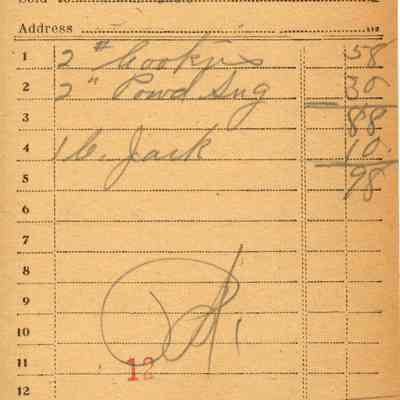 Sold to
Address
1 2 # Cookies 58
2 2 " Powd Sug 30
3 88
4 1 C. Jack 10
5 98
6
7
8
9
10
11 12
12